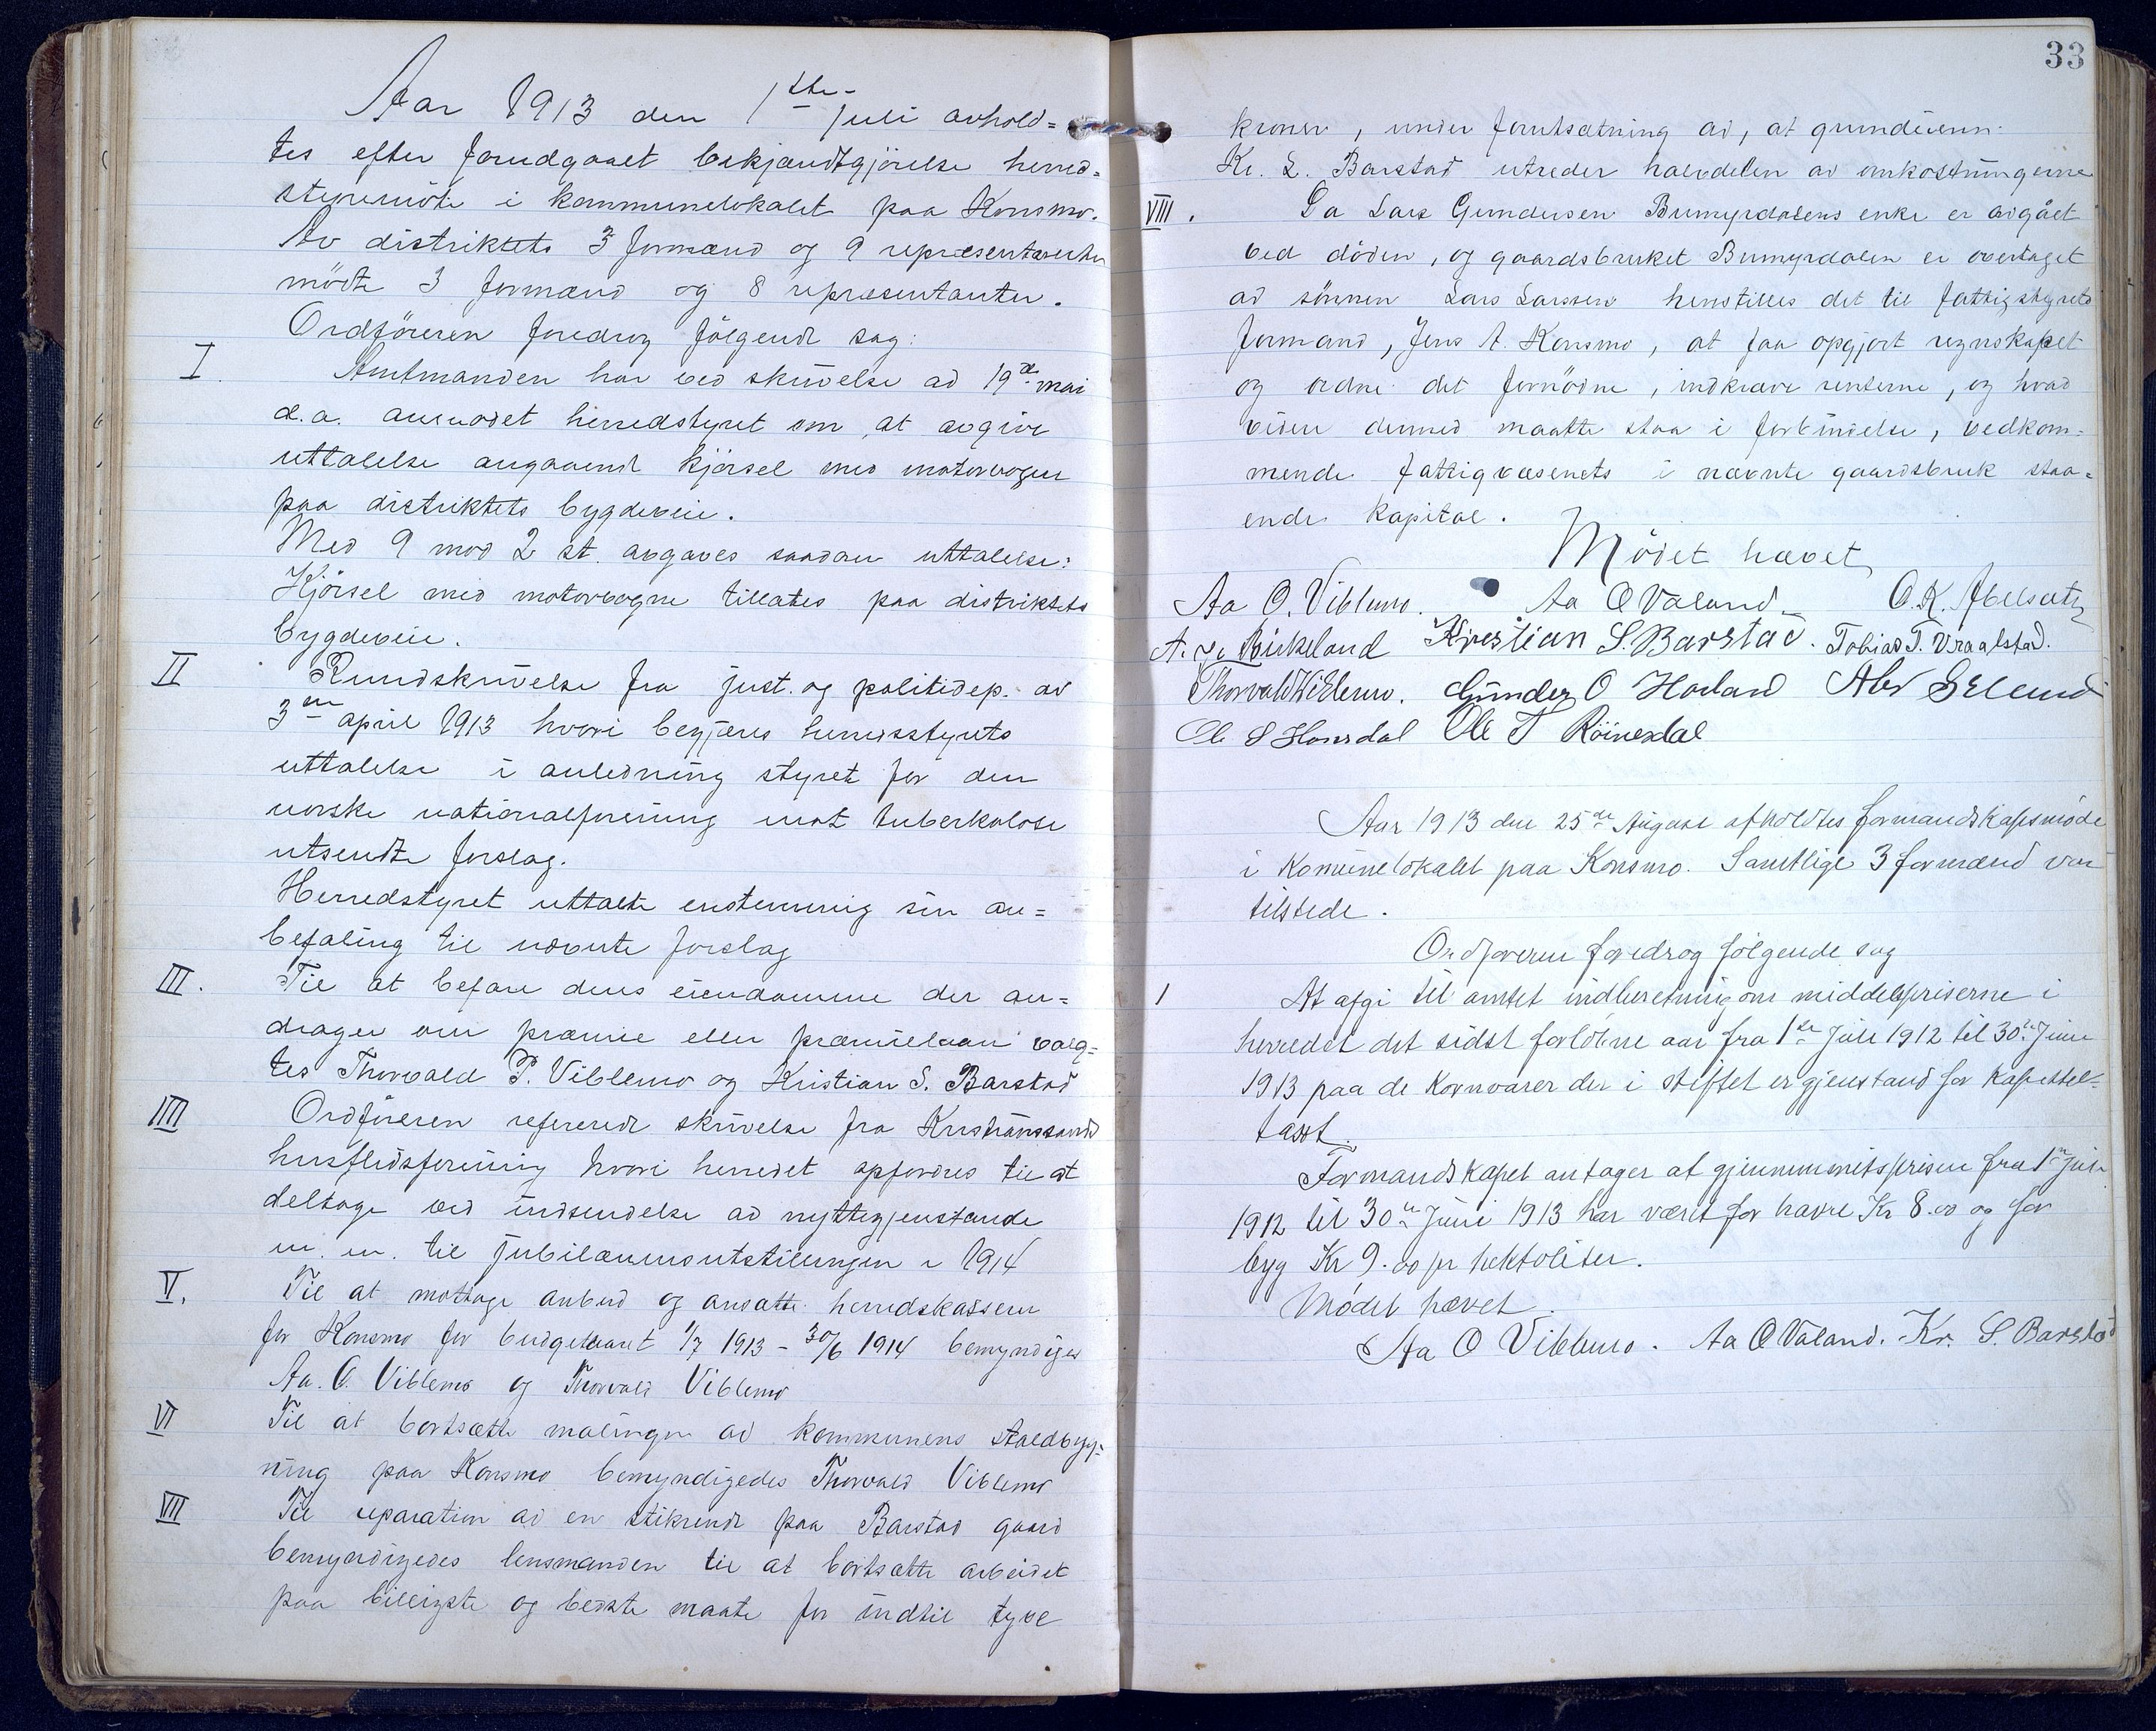 Aar 1913 den 1ste Juli avhold=
tes efter forudgaaet bekjendtgjörelse herred=
styremöte i kommunelokalet paa Konsmo.
Av distriktets 3 formænd og 9 repræsentanter
mödte 3 formænd og 8 repræsentanter.
Ordföreren foredrog fölgende sag:
I. Amtmanden har ved skrivelse ad 19de mai
d.a. anmodet herredstyret om at avgive
uttalelse angaaende kjörsel med motorvogn
paa distriktets bygdeveie.
Med 9 mod 2 st. avgaves saadan uttalelse:
Kjörsel med motorvogne tillates paa distriktets
bygdeveie.
II Rundskrivelse fra just. og politidep. av
3en april 1913 hvori begjæres herredsstyrets
uttalelse i anledning styret for den
norske nationalforening mot tuberkulose
utsendte forslag.
Herredstyret uttalte enstemmig sin an=
befaling til nævnte forslag
III. Til at befare deres eiendomme der an=
drager om præmie eller præmielaan valg=
tes Thorvald P. Viblemo og Kristian S. Barstad
IIII Ordföreren refererede skrivelse fra Kristianssands
husflidsforening hvori herredet opfordres til at
deltage ved indsendelse ad nyttegjenstande
m. m. til jubilæumsutstillingen i 1914
V. Til at mottage anbud og ansætte herredskasserer
for Konsmo for budgetaaret 1/7 1913 - 30/6 1914 bemyndiges
Aa. O. Viblemo og Thorvald Viblemo
VI Til at bortsætte malingen ad kommunens staldbyg=
ning paa Konsmo bemyndigedes Thorvald Viblemo
VII Til reparation ad en stikrende paa Barstad gaard
bemyndigedes lensmanden til at bortsætte arbeidet
paa billigste og bedste maate for indtil tyve
33
kroner, under forutsætning ad, at grundeieren
Kr. S. Barstad utreder halvdelen av omkostningerne
VIII. Da Lars Gundersen Bumyrdalens enke er avgået
ved döden, og gaardsbruket Bumyrdalen er overtaget
ad sönnen Lars Larssen henstilles det til fattigstyrets
formand, Jens A. Konsmo, at faa opgjort regnskapet
og ordne det fornödne, indkræve renterne, og hvad
videre dermed maatte staa i forbindelse, vedkom=
mende fattigvæsenets i nævnte gaardsbruk staa=
ende kapital.
Mödet hævet
Aa O. Viblemo. Aa O Valand O.K. Abelsæth
A. Birkeland Kristian S. Barstad. Tobias T. Vraalstad.
Thorvald Viblemo. Gunder O Hovland Abr S Elund
Ole S Honsdal Ole T Röinesdal
Aar 1913 den 25de August afholdtes formandskapsmöde
i Komunelokalet paa Konsmo. Samtlige 3 formænd var
tilstede.
Ordföreren foredrog fölgende sag
1 At afgi til amtet indberetning om middelspriserne i
herredet det sidst forlöbne aar fra 1ste Juli 1912 til 30te Juni
1913 paa de Kornvarer der i stiftet er gjenstand for Kapittel-
taxt.
Formandskapet antager at gjennemsnitsprisen fra 1en juli
1912 til 30te Juni 1913 har været for havre Kr 8.00 og for
byg Kr 9.00 pr hektoliter.
Mödet hævet.
Aa O Viblemo. Aa O Valand. Kr. S. Barstad